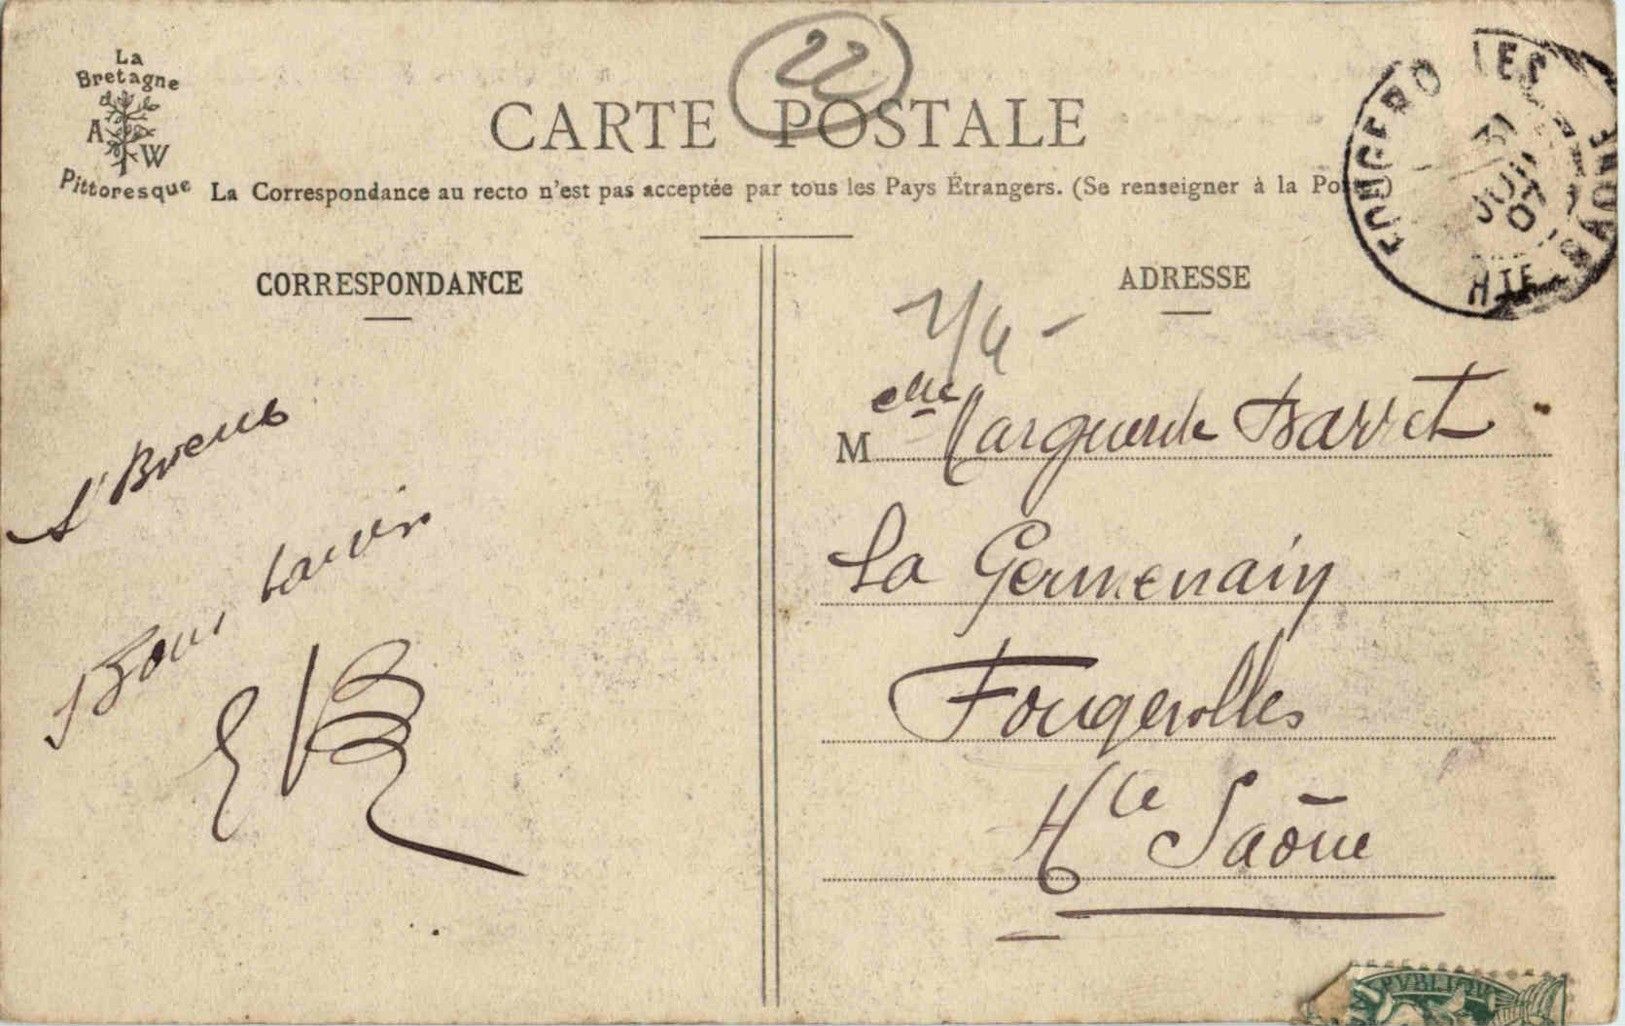 La
Bretagne
A W
Pittoresque
22
CARTE POSTALE
La Correspondance au recto n'est pas acceptée par tous les Pays Étrangers. (Se renseigner à la
FOUGEROLLES
31
07
HTE SAONE
CORRESPONDANCE
ADRESSE
St Brieuc
Bons
EB
Melle Marguerite Barret
La Germenain
Fougerolles
Hte Saône